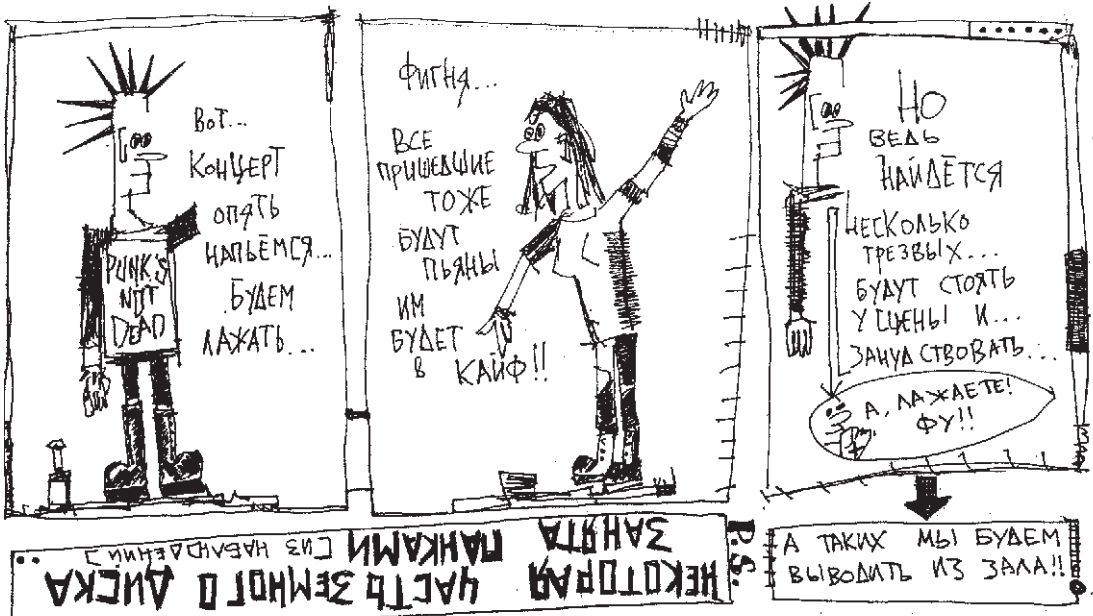 ВОТ...
КОНЦЕРТ
ОПЯТЬ
НАПЬЁМСЯ...
БУДЕМ
ЛАЖАТЬ...
PUNK'S
NOT
DEAD
ФИГНЯ...
ВСЕ
ПРИШЕДШИЕ
ТОЖЕ
БУДУТ
ПЬЯНЫ
ИМ
БУДЕТ
В КАЙФ!!
НО
ВЕДЬ
НАЙДЁТСЯ
НЕСКОЛЬКО
ТРЕЗВЫХ...
БУДУТ СТОЯТЬ
У СЦЕНЫ И...
ЗАНУДСТВОВАТЬ...
А, ЛАЖАЕТЕ!
ФУ!!
P.S.
А ТАКИХ МЫ БУДЕМ
ВЫВОДИТЬ ИЗ ЗАЛА!!
НЕКОТОРАЯ ЧАСТЬ ЗЕМНОГО ДИСКА
ЗАНЯТА ПАНКАМИ [ИЗ НАБЛЮДЕНИЙ]